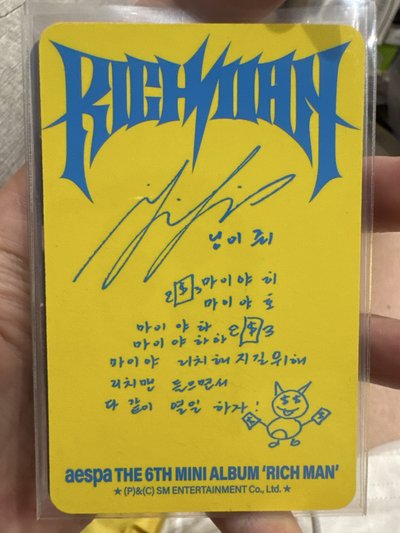 RICH MAN
닝이 줘
마이야 히
마이야 호
마이야 하
마이야 하하
마이야 리치해지길위해
리치맨 들으면서
다 같이 열일 하자!
aespa THE 6TH MINI ALBUM 'RICH MAN'
★ (P)&(C) SM ENTERTAINMENT Co., Ltd. ★